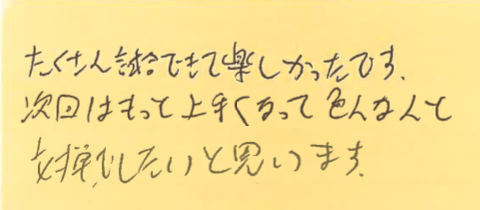 たくさん試合できて楽しかったです.
次回はもっと上手くなって色んな人と
対戦したいと思います.